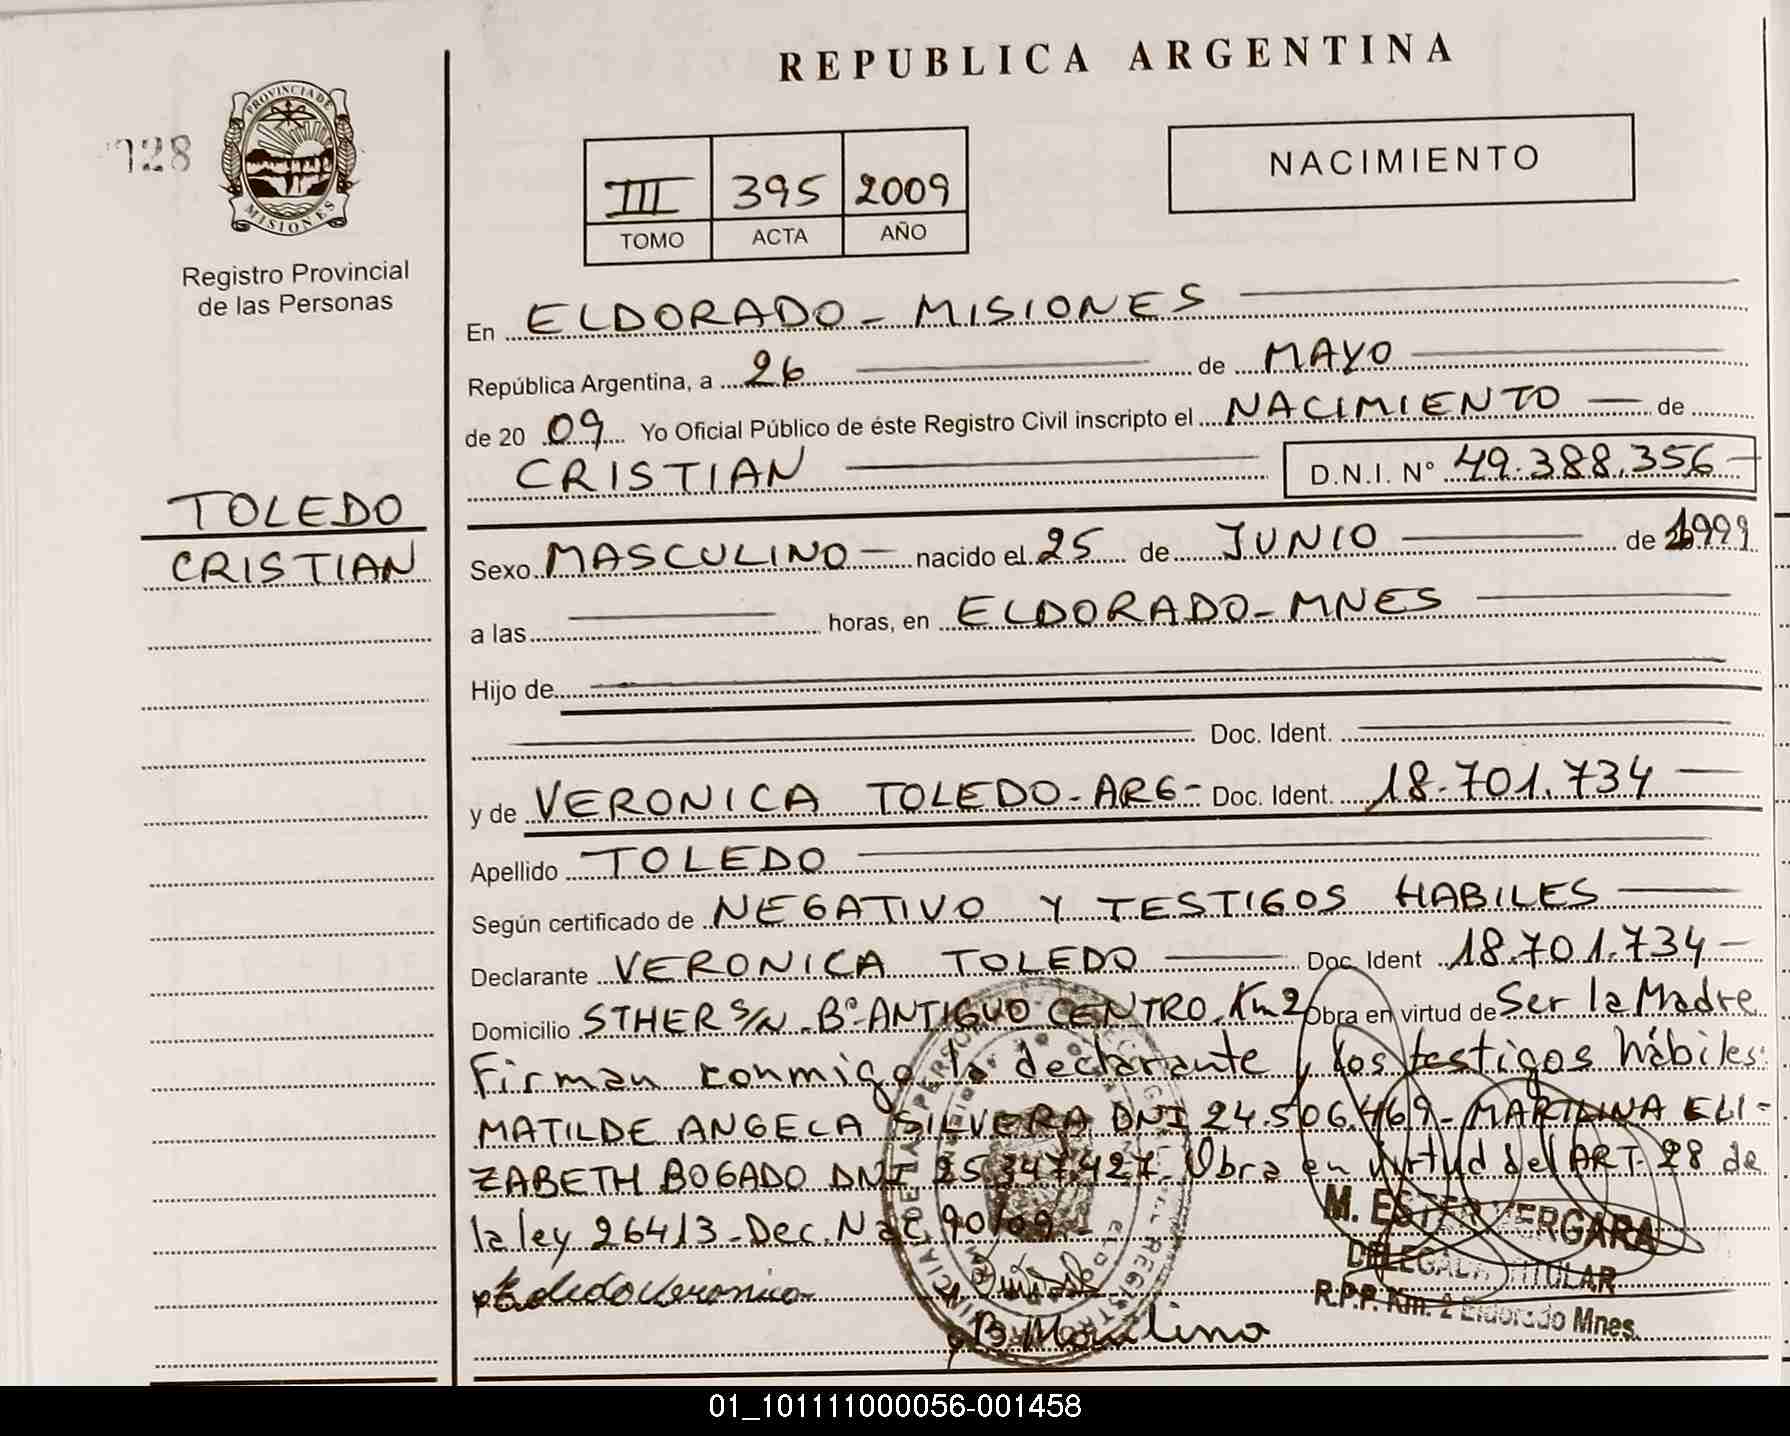 REPUBLICA ARGENTINA
728
PROVINCIA DE MISIONES
Registro Provincial
de las Personas
III 395 2009
TOMO ACTA AÑO
NACIMIENTO
En ELDORADO - MISIONES
República Argentina, a 26 de MAYO
de 20 09 Yo Oficial Público de éste Registro Civil inscripto el NACIMIENTO de
CRISTIAN D.N.I. N° 49.388.356
TOLEDO
CRISTIAN
Sexo MASCULINO nacido el 25 de JUNIO de 1999
a las horas, en ELDORADO - MNES
Hijo de
Doc. Ident.
y de VERONICA TOLEDO - ARG - Doc. Ident. 18.701.734
Apellido TOLEDO
Según certificado de NEGATIVO Y TESTIGOS HABILES
Declarante VERONICA TOLEDO Doc. Ident 18.701.734
Domicilio STHER S/N - B° ANTIGUO CENTRO Km 2 Obra en virtud de Ser la Madre
Firman conmigo la declarante y los testigos hábiles:
MATILDE ANGELA SILVERA DNI 24.506.469 - MARILINA ELI-
ZABETH BOGADO DNI 25.347.427 - Obra en virtud del ART. 28 de
la ley 26413 - Dec. Nac 90/09 -
Toledo Veronica
M. ESTER VERGARA
DELEGADA TITULAR
R.P.P. Km. 2 Eldorado Mnes.
01_101111000056-001458